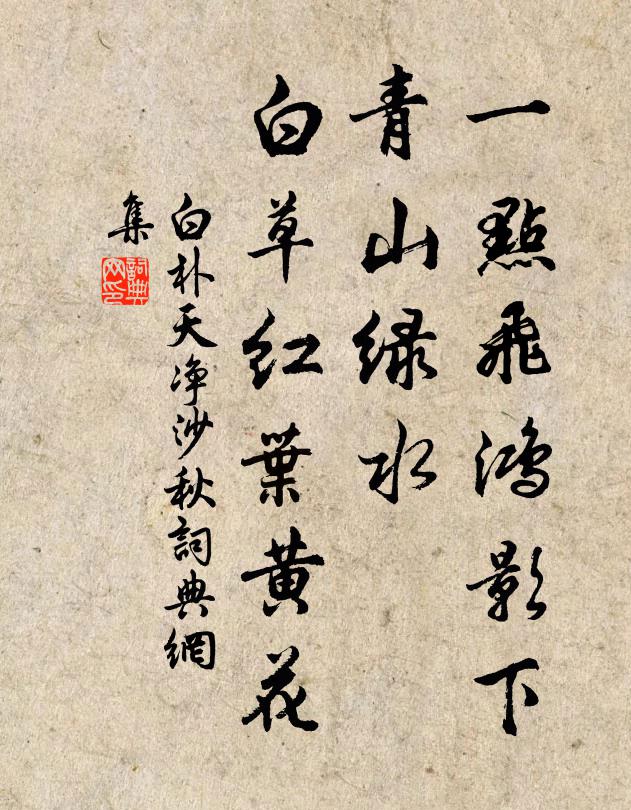 一點飛鴻影下
青山绿水
白草红葉黄花
白朴天净沙秋詞典網
集
詞典
网印